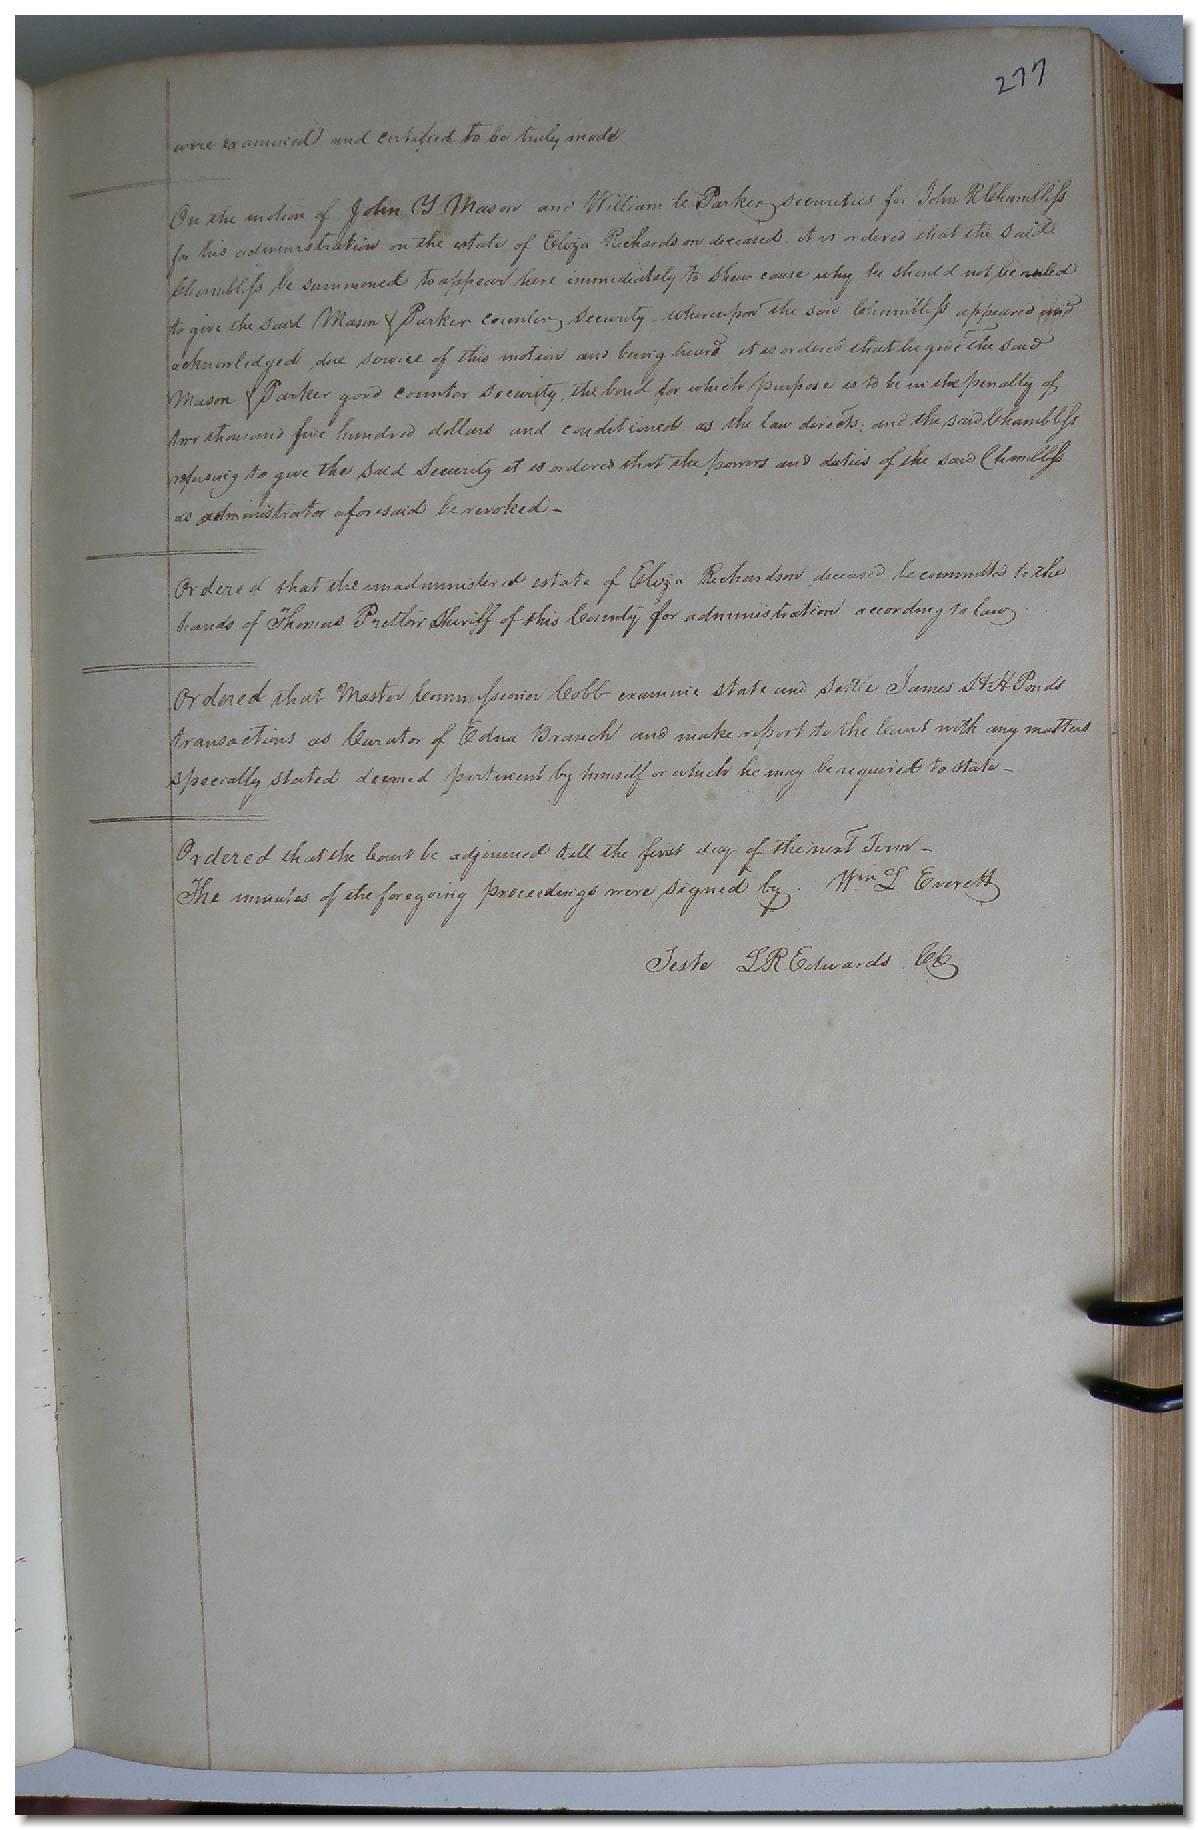 277
were examined and certified to be truly made
On the motion of John Y Mason and William C Parker securities for John R Chambliss
for his administration on the estate of Eliza Richardson deceased it is ordered that the said
Chambliss be summoned to appear here immediately to shew cause why he should not be ruled
to give the said Mason & Parker counter security whereupon the said Chambliss appeared and
acknowledged due service of this motion and being heard it is ordered that he give the said
Mason & Parker good counter security, the bond for which purpose is to be in the penalty of
two thousand five hundred dollars and conditioned as the law directs; and the said Chambliss
refusing to give the said security it is ordered that the powers and duties of the said Chambliss
as administrator aforesaid be revoked –
Ordered that the unadministered estate of Eliza Richardson deceased be committed to the
hands of Thomas Pretlow Sheriff of this County for administration according to law.
Ordered that Master Commissioner Cobb examine state and settle James St H Ponds
transactions as Curator of Edna Branch and make report to the Court with any matters
specially stated deemed pertinent by himself or which he may be required to state –
Ordered that the Court be adjourned till the first day of the next Term –
The minutes of the foregoing proceedings were signed by. Wm L Everett
Teste L R Edwards CC